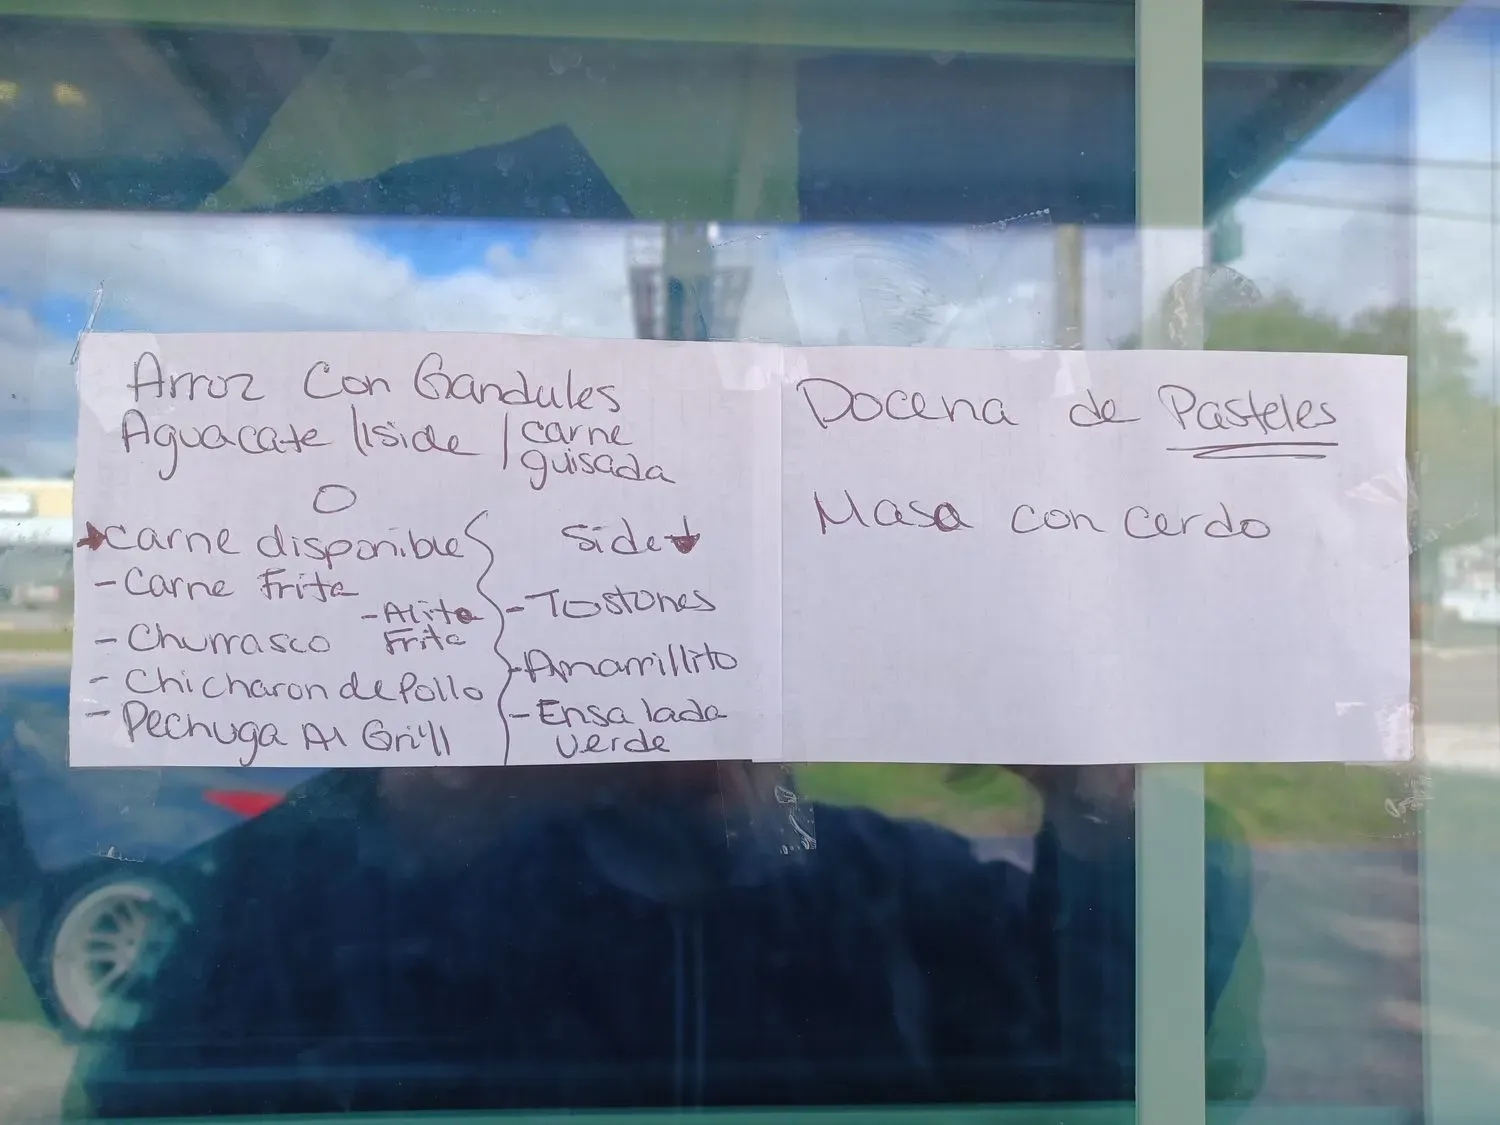 Arroz Con Gandules
Aguacate /1side / carne
guisada
O
carne disponible
- Carne Frita
- Alita
Frita
- Churrasco
- Chicharon de Pollo
- Pechuga Al Grill
Side
- Tostones
- Amarrillito
- Ensalada
verde
Docena de Pasteles
Masa con cerdo